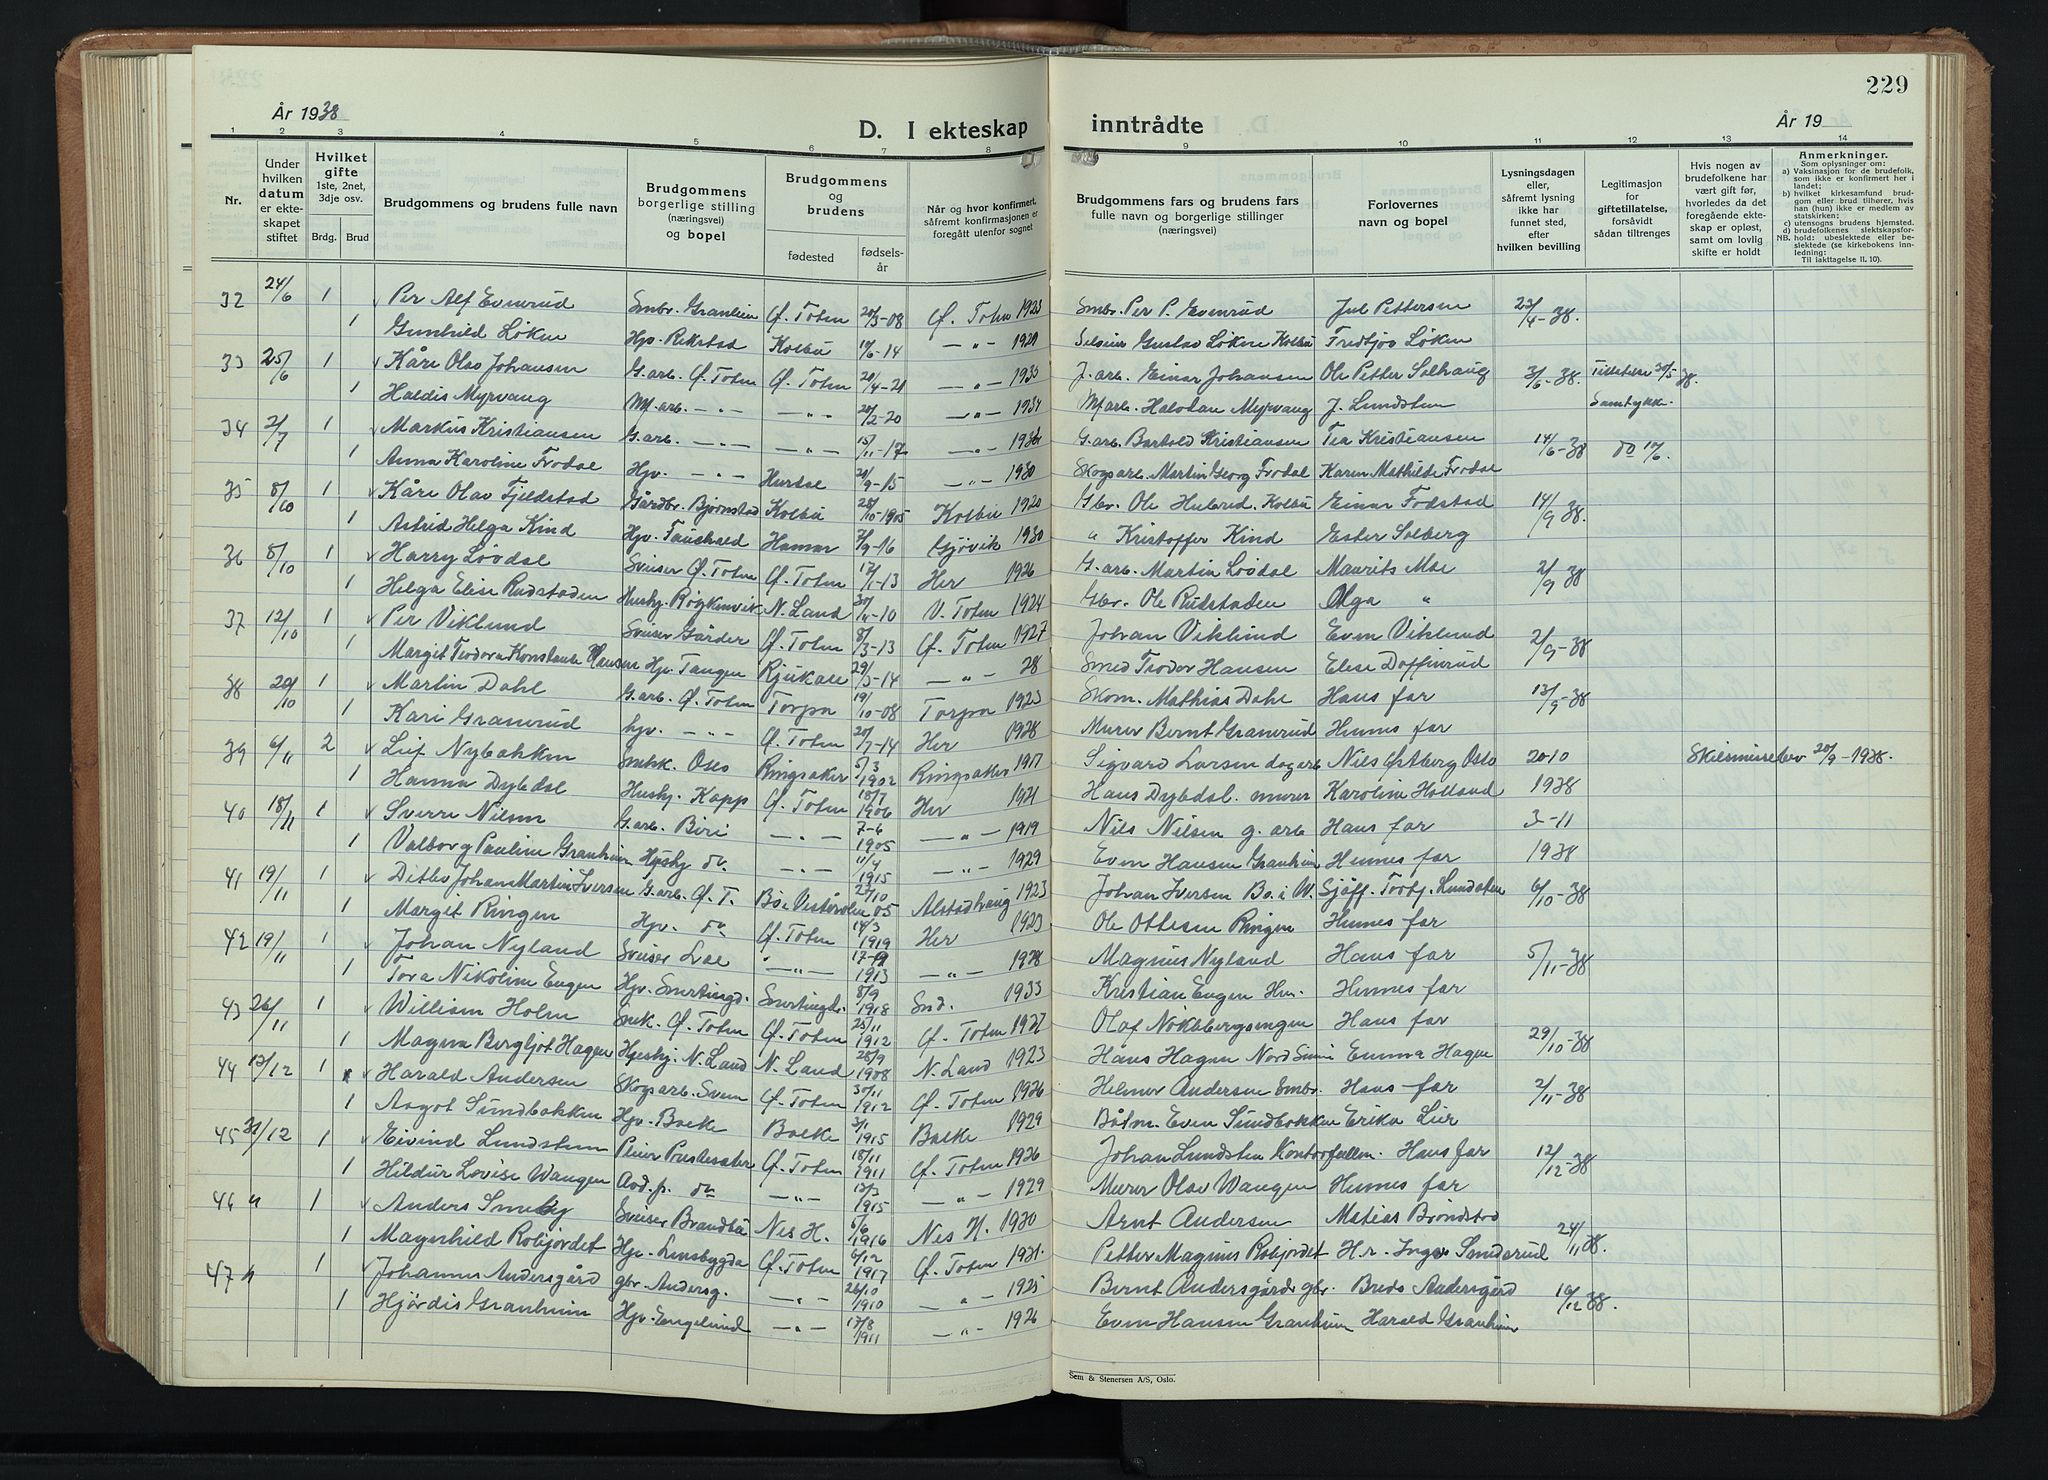 229
År 1938
D. I ekteskap inntrådte
År 19
1 2 3 4 5 6 7 8 9 10 11 12 13 14
Nr.
Under hvilken datum er ekteskapet stiftet
Hvilket gifte 1ste, 2net, 3dje osv.
Brdg. Brud
Brudgommens og brudens fulle navn
Brudgommens borgerlige stilling (næringsvei) og bopel
Brudgommens og brudens
fødested
fødselsår
Når og hvor konfirmert, såfremt konfirmasjonen er foregått utenfor sognet
Brudgommens fars og brudens fars fulle navn og borgerlige stillinger (næringsvei)
Forlovernes navn og bopel
Lysningsdagen eller, såfremt lysning ikke har funnet sted, efter hvilken bevilling
Legitimasjon for giftetillatelse, forsåvidt sådan tiltrenges
Hvis nogen av brudefolkene har vært gift før, hvorledes da det foregående ekteskap er opløst, samt om lovlig skifte er holdt
Anmerkninger.
Som oplysninger om:
a) Vaksinasjon for de brudefolk, som ikke er konfirmert her i landet;
b) hvilket kirkesamfund brudgom eller brud tilhører, hvis han (hun) ikke er medlem av statskirken;
c) utensogns brudens hjemsted.
d) brudefolkenes slektskapsforhold: ubeslektede eller beslektede (se kirkebokens innledning:
NB.
Til iakttagelse II. 10).
32 24/6 1 Per Alf Evenrud Smbr. Granlien Ø. Toten 20/3-08 Ø. Toten 1923 Smbr. Per P. Evenrud Jul Pettersen 22/4-38.
1 Gunhild Løken Hjv. Rekstad Kolbu 10/6-14 — " — 1929 Selveier Gustav Løken Kolbu Fredtjov Løken
33 25/6 1 Kåre Olav Johansen G.arb. Ø. Toten Ø. Toten 20/4-21 — " — 1935 J. arb. Einar Johansen Ole Petter Solhaug 3/6-38. Tillatelse 30/5 38.
1 Haldis Myrvang M.arb. — " — — " — 20/2-20 — " — 1934 M.arb. Halvdan Myrvang J. Lundsten Samtykke.
34 2/7 1 Markus Kristiansen G.arb. — " — — " — 15/11-17 — " — G.arb. Barthold Kristiansen Tea Kristiansen 14/6-38 do 10/6.
1 Anna Karoline Frodal Hjv. — " — Hurdal 20/9-15 — " — 1930 Skogsarb. Martin Georg Frodal Karen Mathilde Frodal
35 8/10 1 Kåre Olav Fjeldstad Gårdbr. Bjørnstad Kolbu 28/10-1905 Kolbu 1920 Gbr. Ole Hulerud. Kolbu Einar Fodstad 14/9 38.
1 Astrid Helga Kind Hjv. Fauchald Hamar 7/9-16 Gjøvik 1930 " Kristoffer Kind Ester Solberg
36 8/10 1 Harry Løvdal Sveiser Ø. Toten Ø. Toten 17/1-13 Her 1926 G.arb. Martin Løvdal Maurits Moe 2/9-38
1 Helga Elise Rudstaden Hushj. Røykenvik N. Land 30/11-10 V. Toten 1924 Gbr. Ole Rudstaden Olga "
37 12/10 1 Per Viklund Sveiser Gårder Ø. Toten 8/3-13 Ø. Toten 1927 Johan Viklund Even Viklund 2/9-38
1 Margit Teodora Konstanse Hansen Hjv. Tangen Rjukan 29/3-14 — " — 28 Smed Teodor Hansen Elise Doffinrud
38 20/10 1 Martin Dahl G.arb. Ø. Toten Torpa 19/10-08 Torpa 1923 Skom. Mathias Dahl Hans far 13/9-38
1 Kari Granerud hjv. — " — Ø. Toten 20/7-14 Her 1928 Murer Bernt Granerud Hennes far
39 6/11 2 Leif Nybakken snekk. Oslo Ringsaker 5/3 1902 Ringsaker 1917 Sigvard Larsen dagarb. Nils Østberg Oslo 20-10 Skilsmissebev 20/9-1938.
1 Hanna Dybdal Hushj. Kapp Ø. Toten 18/7 1906 Her 1921 Hans Dybdal. murer Karoline Holland 1938
40 18/11 1 Sverre Nilsen G.arb. Biri — " — 7-6 1905 — " — 1919 Nils Nilsen g. arb Hans far 3-11
1 Valborg Pauline Granheim Hushj do. — " — 11/4 1915 — " — 1929 Even Hansen Granheim Hennes far 1938
41 19/11 1 Ditlev Johan Martin Iversen G.arb. Ø. T. Bø i Vesterålen 27/10 05 Alstadhaug 1923 Johan Iversen Bø. i V. Sjåff. Torbj. Lundsten 6/10-38
1 Marget Ringen Hjv. do Ø. Toten 14/3 1919 Her 1923 Ole Ottesen Ringen Hennes far
42 19/11 1 Johan Nyland Sveiser Loe — " — 1913 — " — 1928 Magnus Nyland Hans far 5/11-38
1 Tora Nikoline Engen Hjv. Snertingd. Snertingdl. 8/9 1918 Snd. 1933 Kristian Engen Hennes far
43 26/11 1 William Holm Snek. Ø. Toten Ø. Toten 25/11 1912 Ø. Toten 1927 Olaf Hans far
1 Magna Bergljot Hagen Hushj. N. Land N. Land 28/9 1908 N. Land 1923 Hans Hagen Nord Sinni Emma Hagen 29/10-38
44 12 1 Harald Andersen Skogsarb. Sven Ø. Toten 30/11 1912 Ø. Toten 1926 Helmer Andersen Smbr. Hans far 2/11-38
1 Aagot Sundbakken Hjv. Balke Balke 3/1 1915 Balke 1929 Båtm. Even Sundbakken Erika Lier
45 31/12 1 Eivind Lundsten Pleier Prestesæter Ø. Toten 18/11 1911 Ø. Toten 1926 Johan Lundsten Kontorfullm. Hans far 12/12-38
1 Hildur Lovise Wangen Avd.p. do — " — 13/3 1915 — " — 1929 Murer Olav Wangen Hennes far
46 " 1 Anders Smeby Sveiser Brandbu Nes H. 5/6 1916 Nes H. 1930 Arnt Andersen Matias Brøndstad
1 Magnhild Rosjordet Hjv. Lensbygda Ø. Toten 6/12 1917 Ø. Toten 1931. Petter Magnus Rosjordet H.r. Inger Sønderud 24/11 38.
47 " 1 Johannes Andersgård gbr. Andersg. — " — 26/10 1910 — " — 1925 Bernt Andersgård gbr. Andersgård 10/12 38.
1 Hjørdis Granheim Hjv. Englund — " — 17/8 1911 — " — 1926 Even Hansen Granheim Harald Granheim
Sem & Stenersen A/S, Oslo.